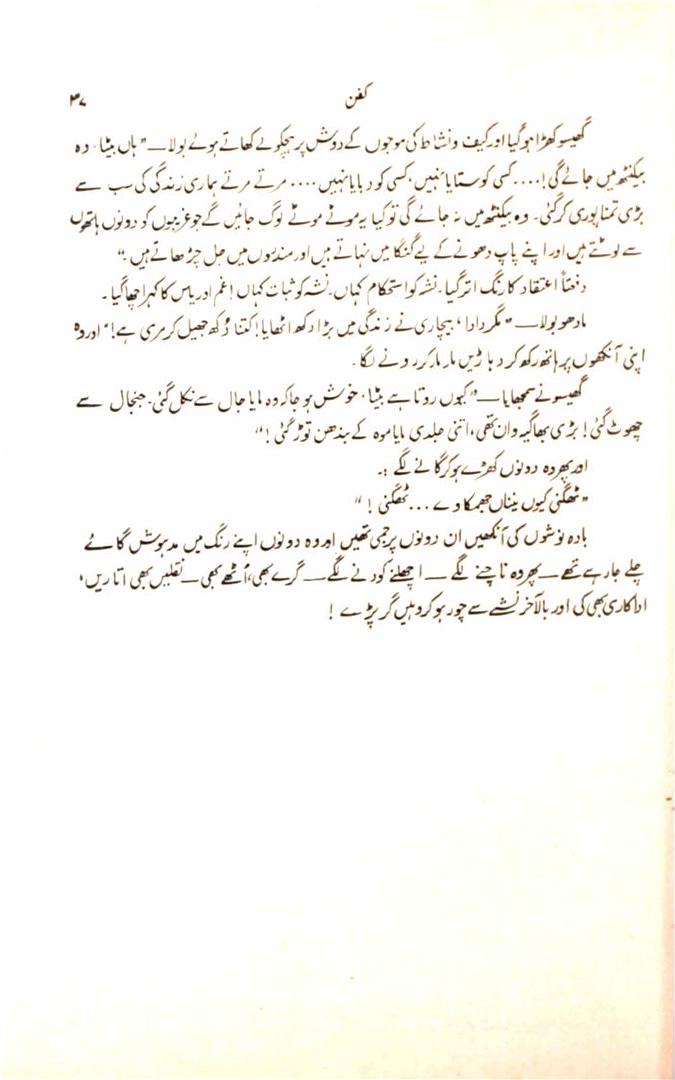 کفن ۳۷
گھیسو کھڑا ہو گیا اور کیف و نشاط کی موجوں کے دوش پر ہچکولے کھاتے ہوئے بولا — "ہاں بیٹا، وہ
بیکنٹھ میں جائے گی! .... کسی کو ستایا نہیں، کسی کو دبایا نہیں .... مرتے مرتے ہماری زندگی کی سب سے
بڑی تمنا پوری کر گئی۔ وہ بیکنٹھ میں نہ جائے گی تو کیا یہ موٹے موٹے لوگ جائیں گے جو غریبوں کو دونوں ہاتھوں
سے لوٹتے ہیں اور اپنے پاپ دھونے کے لیے گنگا میں نہاتے ہیں اور مندروں میں جل چڑھاتے ہیں۔"
دفعتاً اعتقاد کا رنگ اتر گیا۔ نشہ کو استحکام کہاں۔ نشہ کو ثبات کہاں! غم اور یاس کا کہرا چھا گیا۔
مادھو بولا — "مگر دادا، بیچاری نے زندگی میں بڑا دکھ اٹھایا! کتنا دُکھ جھیل کر مری ہے!" اور وہ
اپنی آنکھوں پر ہاتھ رکھ کر دہاڑیں مار مار کر رونے لگا۔
گھیسو نے سمجھایا — "کیوں روتا ہے بیٹا، خوش ہو جا کہ وہ مایا جال سے نکل گئی۔ جنجال سے
چھوٹ گئی! بڑی بھاگیہ وان تھی، اتنی جلدی مایا موہ کے بندھن توڑ گئی!"
اور پھر وہ دونوں کھڑے ہو کر گانے لگے :۔
"ٹھگنی کیوں نیناں جھمکاوے ... ٹھگنی!"
بادہ نوشوں کی آنکھیں ان دونوں پر جمی تھیں اور وہ دونوں اپنے رنگ میں مدہوش گائے
چلے جا رہے تھے — پھر وہ ناچنے لگے — اچھلنے کودنے لگے — گرے بھی، اُٹھے بھی — نقلیں بھی اتاریں،
اداکاری بھی کی اور بالآخر نشے سے چور ہو کر وہیں گر پڑے!